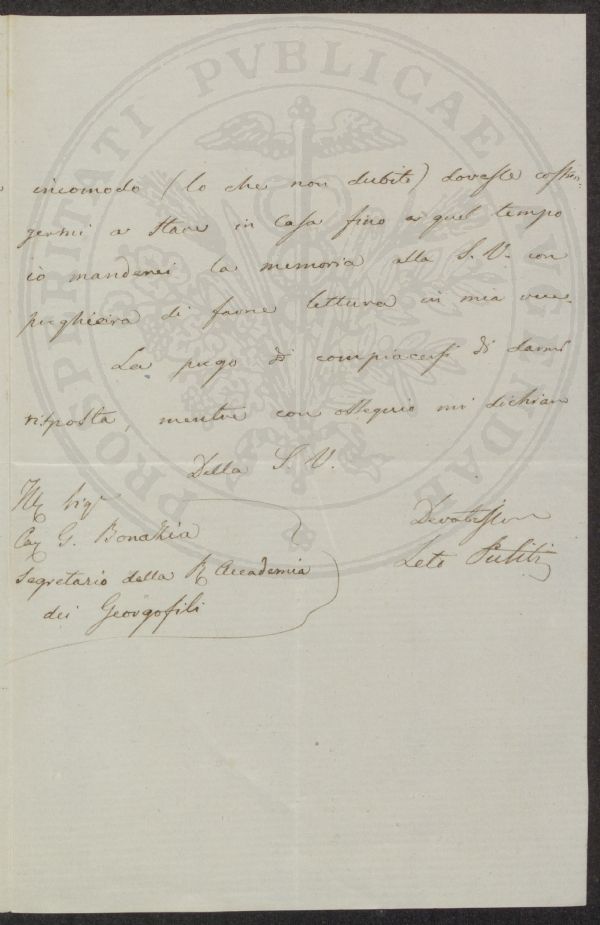 PROSPERITATI PVBLICAE AVGENDAE
incomodo (lo che non dubito) dovesse costrin-
germi a stare in Casa fino a quel tempo
io manderei la memoria alla S. V. con
preghiera di farne lettura in mia vece.
La prego di compiacersi di darmi
risposta, mentre con ossequio mi dichiaro
Della S. V.
Devotissimo
Leto Puliti
Ill Sigr
Cav G. Bonazzia
Segretario della R Accademia
dei Georgofili